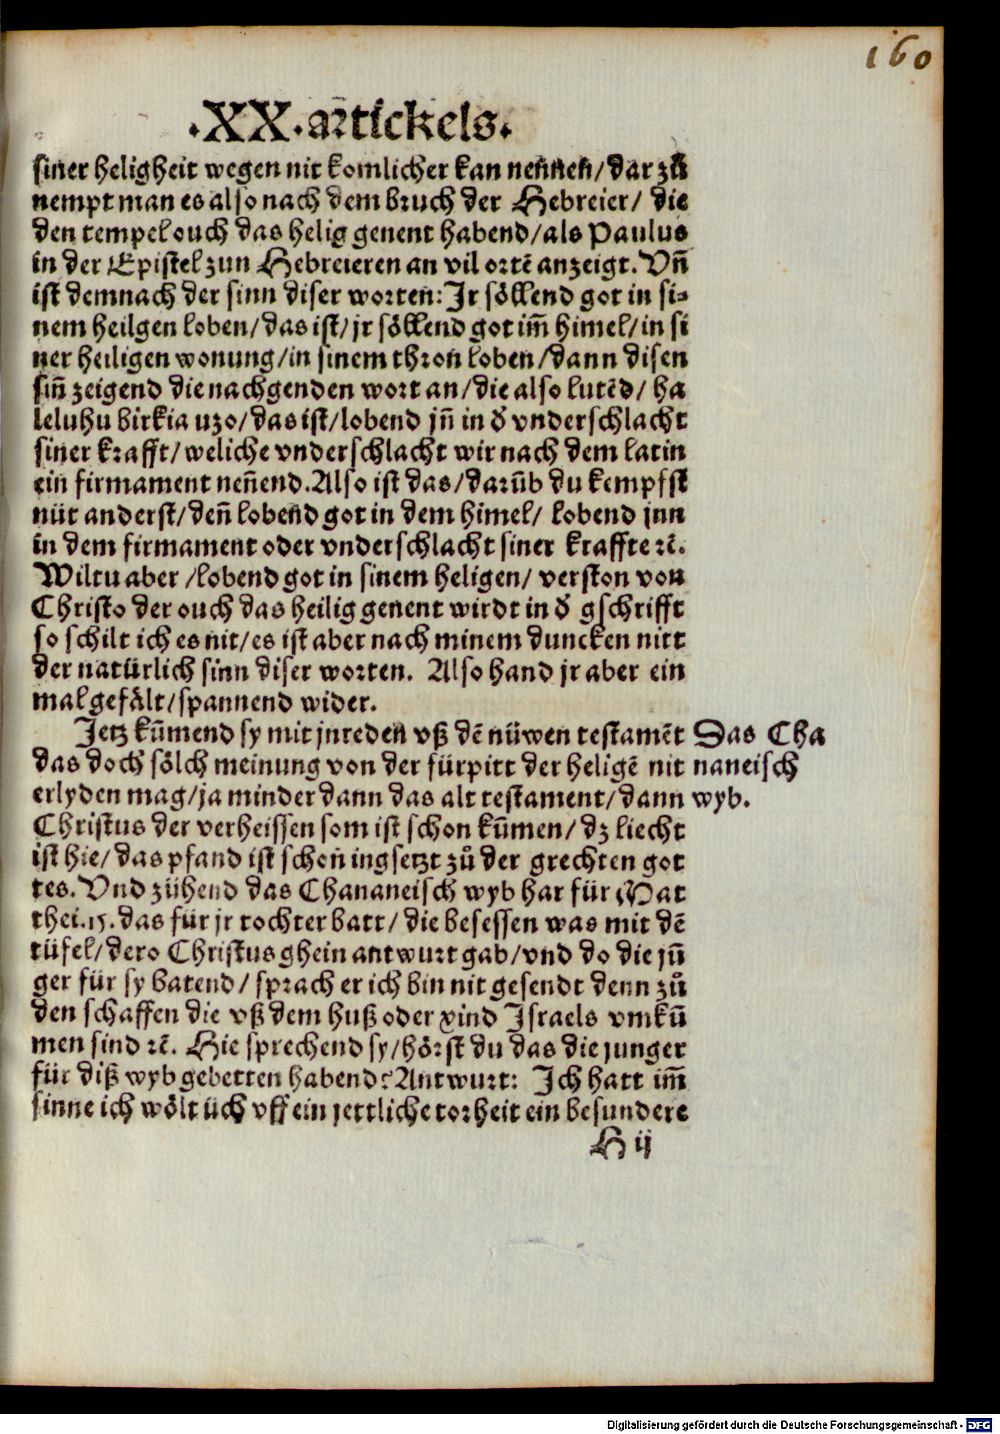 160
.XX.artickels.
siner heligheit wegen nit komlicher kan nen̄nen̄/dar zů
nempt man es also nach dem bruch der Hebreier/ die
den tempel ouch das helig genent habend/als Paulus
in der Epistel zun Hebreieren an vil ortē anzeigt. Vn̄
ist demnach der sinn diser worten: Jr söllend got in si⸗
nem heilgen loben/das ist/jr söllend got im̄ himel/in si
ner heiligen wonung/in sinem thron loben/dann disen
sin̄ zeigend die nachgenden wort an/die also lutēd/ ha
leluhu birkia uzo/das ist/lobend jn̄ in d̕ vnderschlacht
siner krafft/weliche vnderschlacht wir nach dem latin
ein firmament nen̄end. Also ist das/darūb du kempfst
nüt anderst/den̄ lobend got in dem himel/ lobend jnn
in dem firmament oder vnderschlacht siner kraffte ꝛc̄.
Wiltu aber /lobend got in sinem heligen/ verston von
Christo der ouch das heilig genent wirdt in d̕ gschrifft
so schilt ich es nit/es ist aber nach minem duncken nitt
der natürlich sinn diser worten. Also hand jr aber ein
mal gefält/spannend wider.
Jetz kūmend sy mit jnreden vß dē nüwen testamēt
das doch sölch meinung von der fürpitt der heligē nit
erlyden mag/ja minder dann das alt testament/dann
Das Cha
naneisch
wyb.
Christus der verheissen som ist schon kūmen/dz liecht
ist hie/das pfand ist schon ingsetzt zů der grechten got
tes. Vnd zühend das Chananeisch wyb har für Mat
thei.15. das für jr tochter batt/ die besessen was mit dē
tüfel/dero Christus ghein antwurt gab/vnd do die jū
ger für sy batend/ sprach er ich bin nit gesendt denn zů
den schaffen die vß dem huß oder xind Israels vmkū
men sind ꝛc̄. Hie sprechend sy/hörst du das die junger
für diß wyb gebetten habend? Antwurt: Jch hatt im̄
sinne ich wölt üch vff ein jettliche torheit ein besundere
H ij
Digitalisierung gefördert durch die Deutsche Forschungsgemeinschaft - DFG